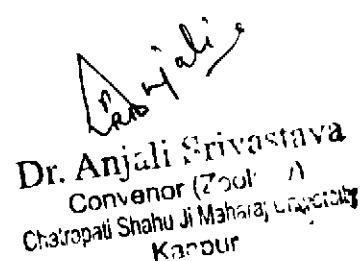 Anjali
Dr. Anjali Srivastava
Convenor
Chatrapati Shahu Ji Maharaj University
Kanpur